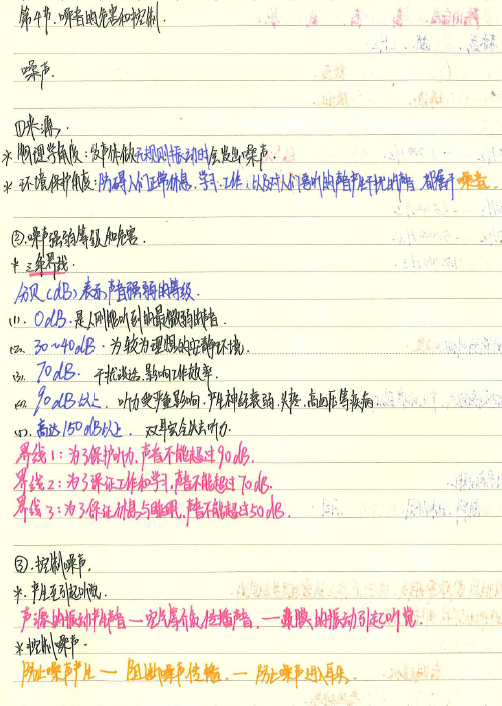 第4节.噪音的危害和控制
噪声.
①来源.
*物理学角度:发声体做无规则振动时会发出噪声.
*环境保护角度:妨碍人们正常休息.学习.工作,以及对人们要听的声音产生干扰的声音.都属于噪音.
②.噪声强弱等级和危害.
*三条界线.
分贝(dB)表示声音强弱的等级.
(1). 0dB.是人刚能听到的最微弱的声音.
(2). 30~40dB.为较为理想的安静环境.
(3). 70dB. 干扰谈话.影响工作效率.
(4). 90dB以上. 听力受严重影响.产生神经衰弱.头疼.高血压等疾病
(5). 高达150dB以上. 双耳完全失去听力.
界线1:为了保护听力,声音不能超过90dB.
界线2:为了保证工作和学习.声音不能超过70dB.
界线3:为了保证休息与睡眠.声音不能超过50dB.
③.控制噪声.
*.产生至引起听觉.
声源的振动产生声音—空气等介质传播声音.—鼓膜的振动引起听觉.
*控制噪声.
防止噪声产生—阻断噪声传播.—防止噪声进入耳朵.